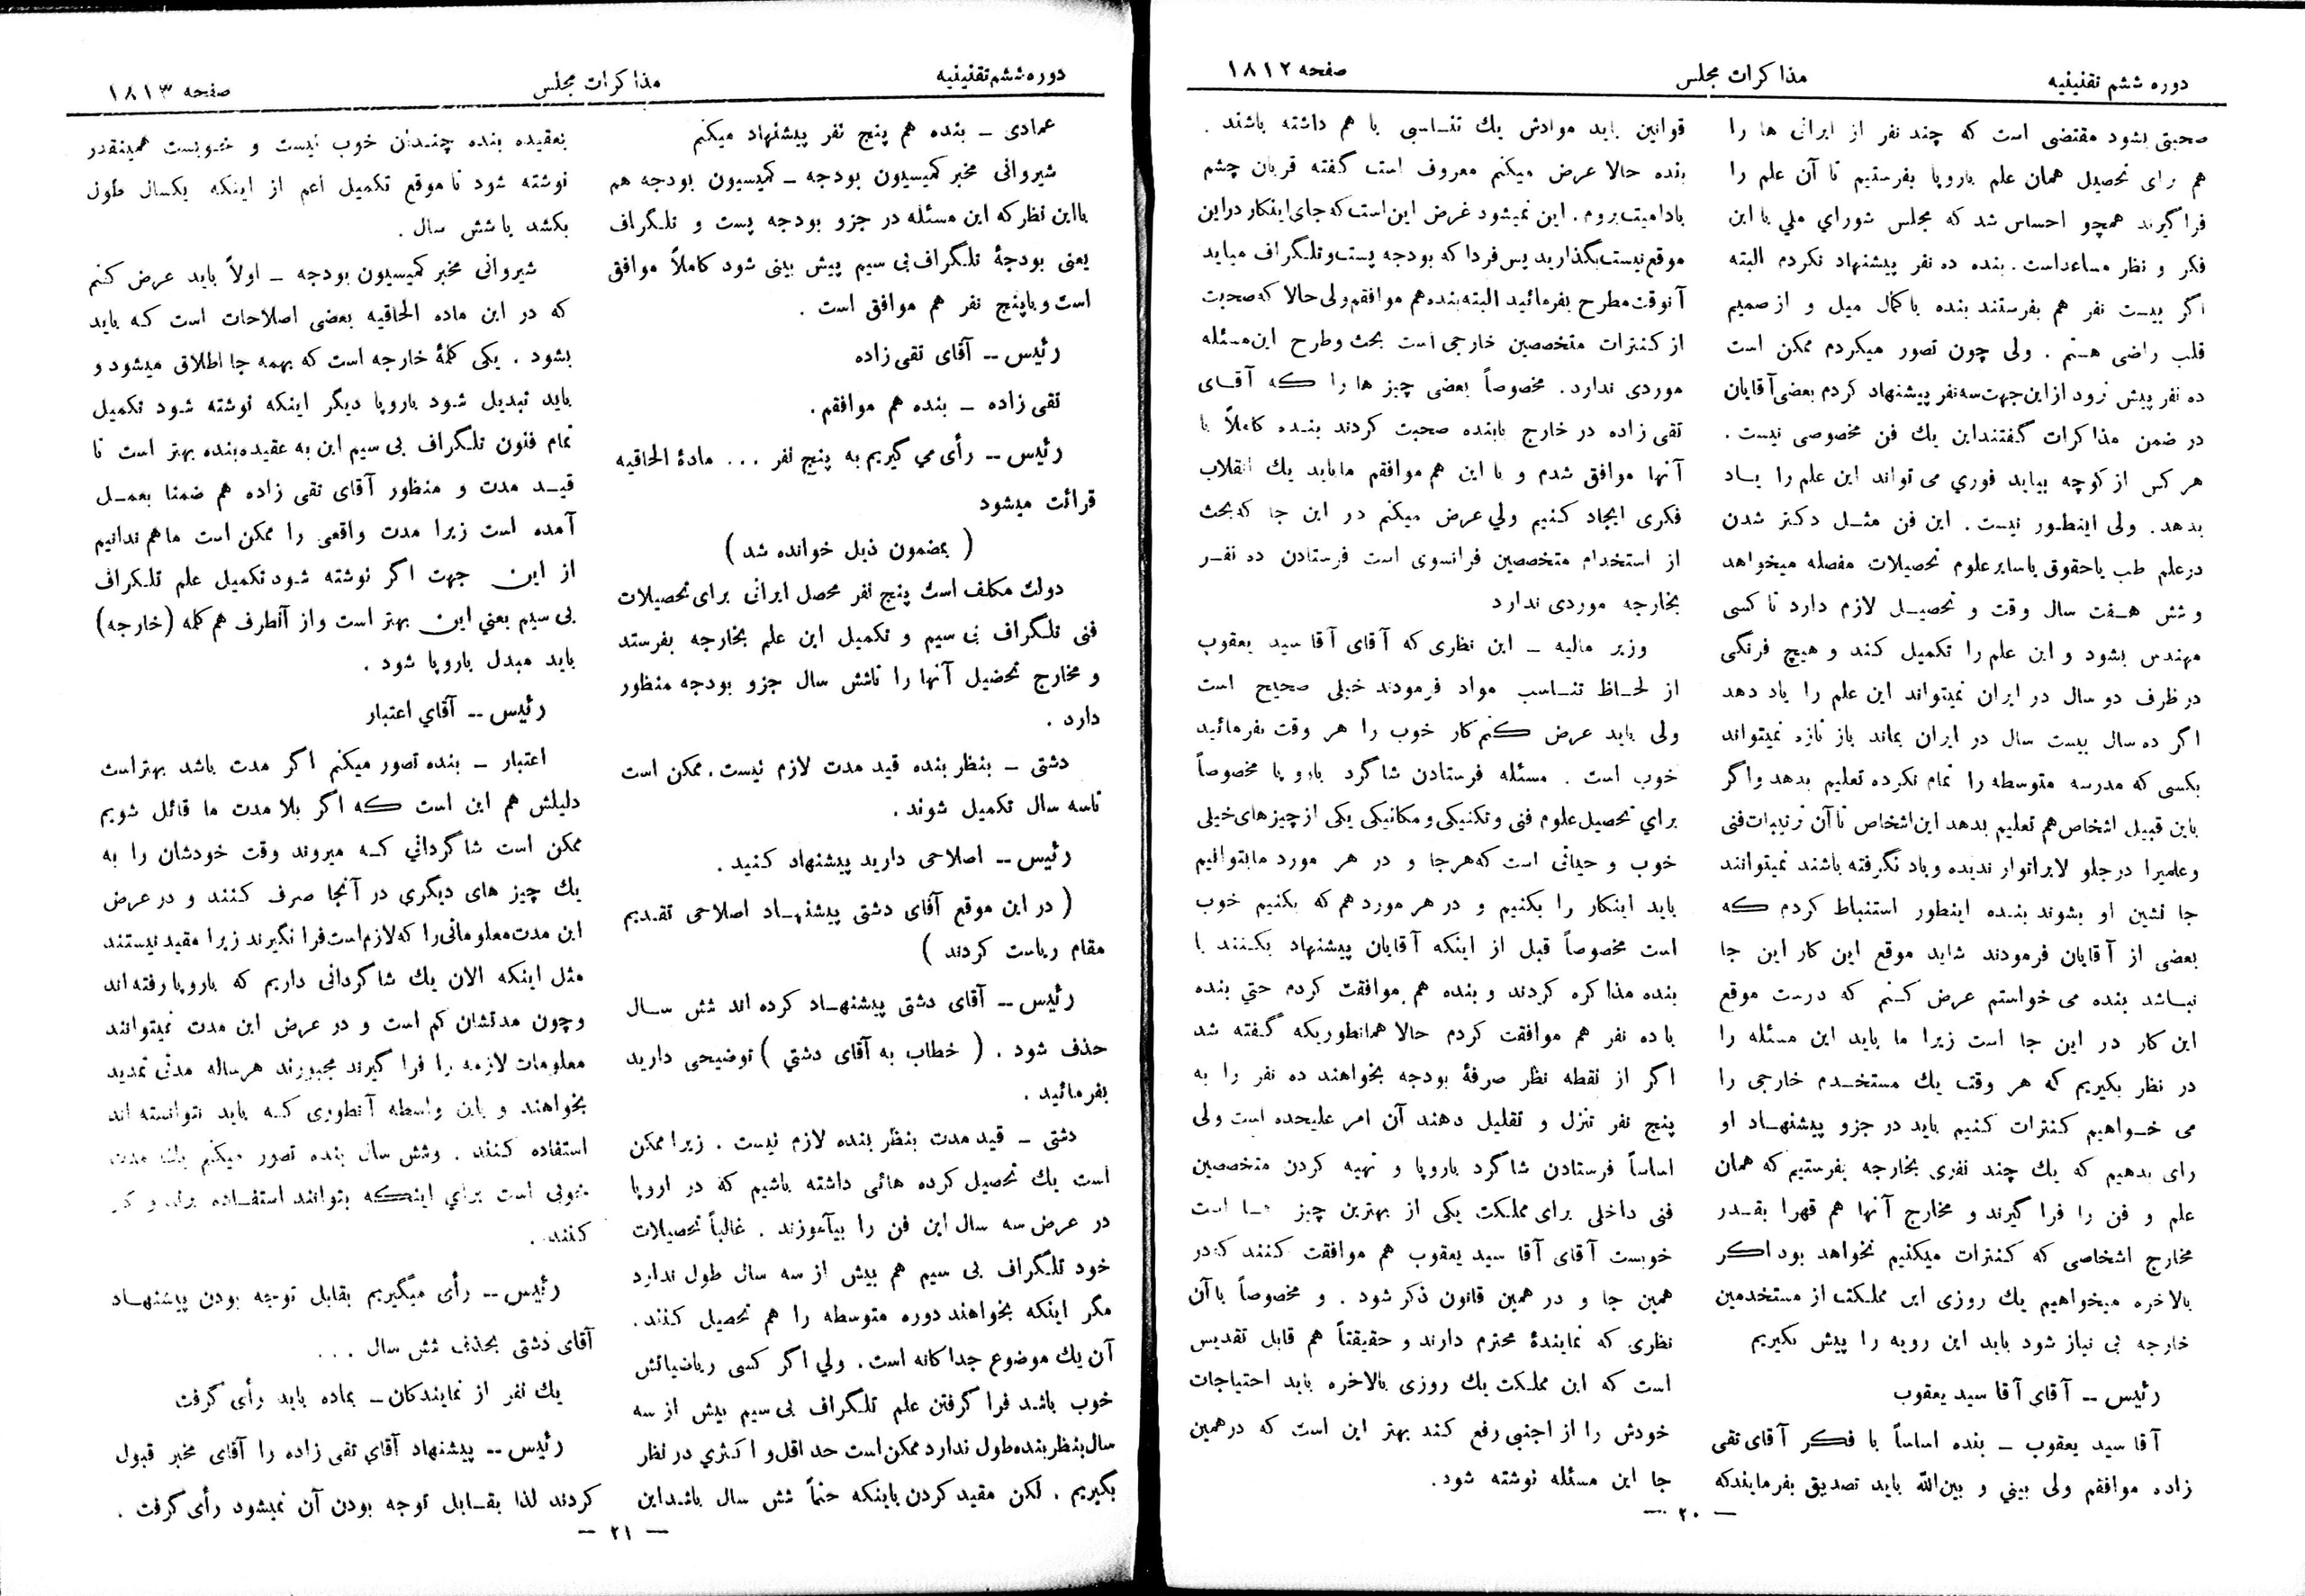 دوره ششم تقنینیه
مذاکرات مجلس
صفحه ۱۸۱۲
صحبتی بشود مقتضی است که چند نفر از ایرانی ها را
هم برای تحصیل همان علم باروپا بفرستیم تا آن علم را
فرا گیرند همچو احساس شد که مجلس شورای ملی با این
فکر و نظر مساعد است. بنده ده نفر پیشنهاد نکردم البته
اگر بیست نفر هم بفرستند بنده با کمال میل و از صمیم
قلب راضی هستم . ولی چون تصور میکردم ممکن است
ده نفر پیش نرود از این جهت سه نفر پیشنهاد کردم بعضی آقایان
در ضمن مذاکرات گفتند این یك فن مخصوصی نیست .
هر کس از کوچه بیاید فوری می تواند این علم را یاد
بدهد . ولی اینطور نیست . این فن مثل دکتر شدن
در علم طب یا حقوق یا سایر علوم تحصیلات مفصله میخواهد
و شش هفت سال وقت و تحصیل لازم دارد تا کسی
مهندس بشود و این علم را تکمیل کند و هیچ فرنگی
در ظرف دو سال در ایران نمیتواند این علم را یاد دهد
اگر ده سال بیست سال در ایران بماند باز تازه نمیتواند
بکسی که مدرسه متوسطه را تمام نکرده تعلیم بدهد و اگر
باین قبیل اشخاص هم تعلیم بدهد این اشخاص تا آن ترتیبات فنی
و علمیرا در جلو لابراتوار ندیده و یاد نگرفته باشند نمیتوانند
جا نشین او بشوند بنده اینطور استنباط کردم که
بعضی از آقایان فرمودند شاید موقع این کار این جا
نباشد بنده می خواستم عرض کنم که درست موقع
این کار در این جا است زیرا ما باید این مسئله را
در نظر بگیریم که هر وقت یك مستخدم خارجی را
می خواهیم کنترات کنیم باید در جزو پیشنهاد او
رای بدهیم که یك چند نفری بخارجه بفرستیم که همان
علم و فن را فرا گیرند و مخارج آنها هم قهرا بقدر
مخارج اشخاصی که کنترات میکنیم نخواهد بود اگر
بالاخره میخواهیم یك روزی این مملکت از مستخدمین
خارجه بی نیاز شود باید این رویه را پیش بگیریم
رئیس -- آقای آقا سید یعقوب
آقا سید یعقوب - بنده اساساً با فکر آقای تقی
زاده موافقم ولی بینی و بین الله باید تصدیق بفرمایند که
قوانین باید موادش یك تناسبی با هم داشته باشند .
بنده حالا عرض میکنم معروف است گفته قربان چشم
بادامیت بروم . این نمیشود غرض این است که جای اینکار در این
موقع نیست بگذارید پس فردا که بودجه پست و تلگراف میاید
آنوقت مطرح بفرمائید البته بنده هم موافقم ولی حالا که صحبت
از کنترات متخصصین خارجی است بحث و طرح این مسئله
موردی ندارد . مخصوصاً بعضی چیز ها را که آقای
تقی زاده در خارج بابنده صحبت کردند بنده کاملاً با
آنها موافق شدم و با این هم موافقم ما باید یك انقلاب
فکری ایجاد کنیم ولی عرض میکنم در این جا که بحث
از استخدام متخصصین فرانسوی است فرستادن ده نفر
بخارجه موردی ندارد
وزیر مالیه - این نظری که آقای آقا سید یعقوب
از لحاظ تناسب مواد فرمودند خیلی صحیح است
ولی باید عرض کنم کار خوب را هر وقت بفرمائید
خوب است . مسئله فرستادن شاگرد باروپا مخصوصاً
برای تحصیل علوم فنی و تکنیکی و مکانیکی یکی از چیز های خیلی
خوب و حیاتی است که هر جا و در هر مورد ما بتوانیم
باید اینکار را بکنیم و در هر مورد هم که بکنیم خوب
است مخصوصاً قبل از اینکه آقایان پیشنهاد بکنند با
بنده مذاکره کردند و بنده هم موافقت کردم حتی بنده
با ده نفر هم موافقت کردم حالا همانطوریکه گفته شد
اگر از نقطه نظر صرفهٔ بودجه بخواهند ده نفر را به
پنج نفر تنزل و تقلیل دهند آن امر علیحده است ولی
اساساً فرستادن شاگرد باروپا و تهیه کردن متخصصین
فنی داخلی برای مملکت یکی از بهترین چیز ها است
خوبست آقای آقا سید یعقوب هم موافقت کنند که در
همین جا و در همین قانون ذکر شود . و مخصوصاً با آن
نظری که نمایندهٔ محترم دارند و حقیقتاً هم قابل تقدیس
است که این مملکت یك روزی بالاخره باید احتیاجات
خودش را از اجنبی رفع کند بهتر این است که در همین
جا این مسئله نوشته شود .
— ۲۰ —
دوره ششم تقنینیه
مذاکرات مجلس
صفحه ۱۸۱۳
عمادی - بنده هم پنج نفر پیشنهاد میکنم
شیروانی مخبر کمیسیون بودجه - کمیسیون بودجه هم
با این نظر که این مسئله در جزو بودجه پست و تلگراف
یعنی بودجهٔ تلگراف بی سیم پیش بینی شود کاملاً موافق
است و باپنج نفر هم موافق است .
رئیس -- آقای تقی زاده
تقی زاده - بنده هم موافقم .
رئیس -- رأی می گیریم به پنج نفر ... مادهٔ الحاقیه
قرائت میشود
( بمضمون ذیل خوانده شد )
دولت مکلف است پنج نفر محصل ایرانی برای تحصیلات
فنی تلگراف بی سیم و تکمیل این علم بخارجه بفرستد
و مخارج تحضیل آنها را تاشش سال جزو بودجه منظور
دارد .
دشتی - بنظر بنده قید مدت لازم نیست . ممکن است
تاسه سال تکمیل شوند .
رئیس -- اصلاحی دارید پیشنهاد کنید .
( در این موقع آقای دشتی پیشنهاد اصلاحی تقدیم
مقام ریاست کردند )
رئیس -- آقای دشتی پیشنهاد کرده اند شش سال
حذف شود . ( خطاب به آقای دشتی ) توضیحی دارید
بفرمائید .
دشتی - قید مدت بنظر بنده لازم نیست . زیرا ممکن
است یك تحصیل کرده هائی داشته باشیم که در اروپا
در عرض سه سال این فن را بیآموزند . غالباً تحصیلات
خود تلگراف بی سیم هم بیش از سه سال طول ندارد
مگر اینکه بخواهند دوره متوسطه را هم تحصیل کنند .
آن یك موضوع جداگانه است . ولی اگر کسی ریاضیاتش
خوب باشد فرا گرفتن علم تلگراف بی سیم بیش از سه
سال بنظر بنده طول ندارد ممکن است حد اقل و اکثری در نظر
بگیریم . لکن مقید کردن باینکه حتماً شش سال باشد این
بعقیده بنده چندان خوب نیست و خوبست همینقدر
نوشته شود تا موقع تکمیل اعم از اینکه یکسال طول
بکشد یا شش سال .
شیروانی مخبر کمیسیون بودجه - اولاً باید عرض کنم
که در این ماده الحاقیه بعضی اصلاحات است که باید
بشود . یکی کلمهٔ خارجه است که بهمه جا اطلاق میشود و
باید تبدیل شود باروپا دیگر اینکه نوشته شود تکمیل
تمام فنون تلگراف بی سیم این به عقیده بنده بهتر است تا
قید مدت و منظور آقای تقی زاده هم ضمنا بعمل
آمده است زیرا مدت واقعی را ممکن است ماهم ندانیم
از این جهت اگر نوشته شود تکمیل علم تلگراف
بی سیم یعنی این بهتر است و از آنطرف هم کلمه (خارجه)
باید مبدل باروپا شود .
رئیس -- آقای اعتبار
اعتبار - بنده تصور میکنم اگر مدت باشد بهتر است
دلیلش هم این است که اگر بلا مدت ما قائل شویم
ممکن است شاگردانی که میروند وقت خودشان را به
یك چیز های دیگری در آنجا صرف کنند و در عرض
این مدت معلوماتی را که لازم است فرا نگیرند زیرا مقید نیستند
مثل اینکه الان یك شاگردانی داریم که باروپا رفته اند
و چون مدتشان کم است و در عرض این مدت نمیتوانند
معلومات لازمه را فرا گیرند مجبورند هر ساله مدتی تمدید
بخواهند و باین واسطه آنطوری که باید نتوانسته اند
استفاده کنند . وشش سال بنده تصور میکنم یك مدت
خوبی است برای اینکه بتوانند استفاده
کنند .
رئیس -- رأی میگیریم بقابل توجه بودن پیشنهاد
آقای دشتی بحذف شش سال ...
یك نفر از نمایندگان - بماده باید رأی گرفت
رئیس -- پیشنهاد آقای تقی زاده را آقای مخبر قبول
کردند لذا بقابل توجه بودن آن نمیشود رأی گرفت .
— ۲۱ —